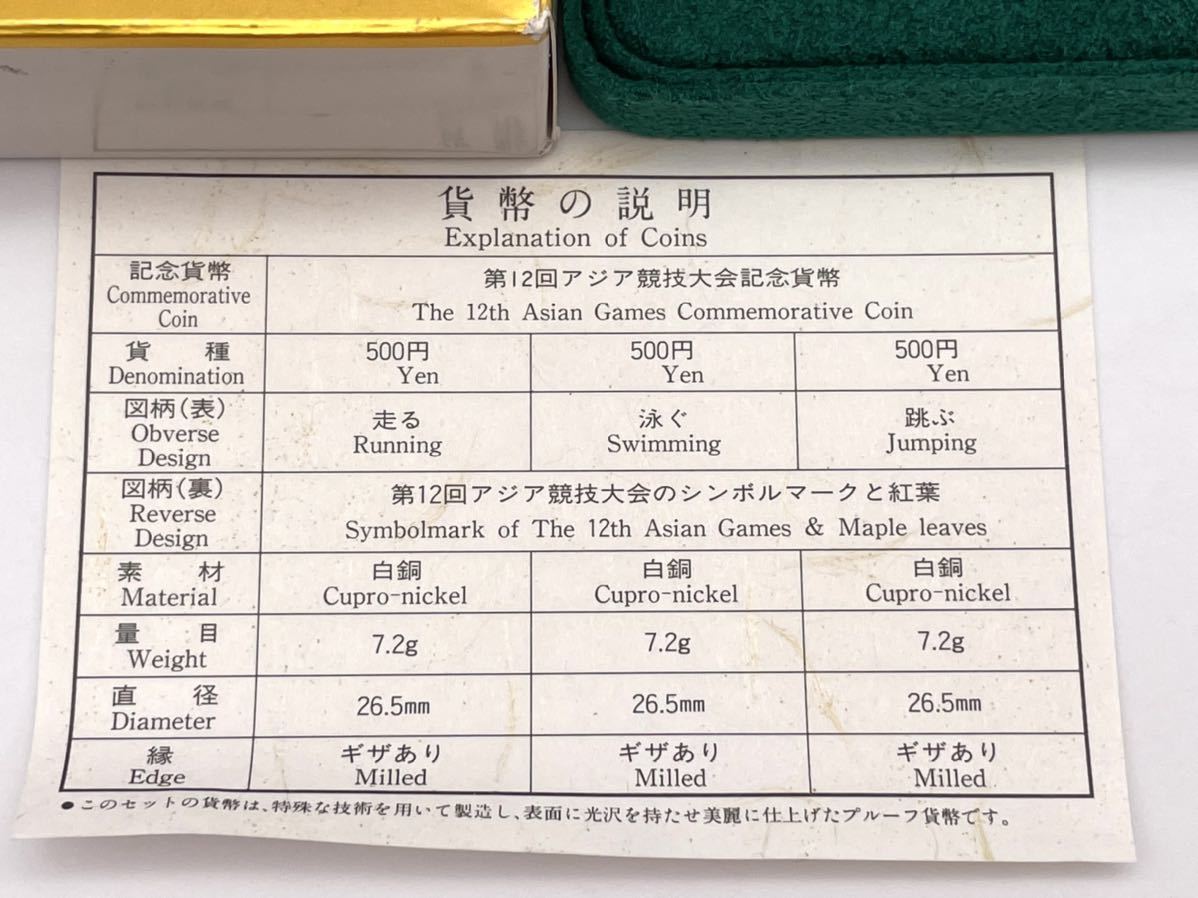 貨幣の説明
Explanation of Coins
記念貨幣
Commemorative
Coin
第12回アジア競技大会記念貨幣
The 12th Asian Games Commemorative Coin
貨種
Denomination
500円
Yen
500円
Yen
500円
Yen
図柄(表)
Obverse
Design
走る
Running
泳ぐ
Swimming
跳ぶ
Jumping
図柄(裏)
Reverse
Design
第12回アジア競技大会のシンボルマークと紅葉
Symbolmark of The 12th Asian Games & Maple leaves
素材
Material
白銅
Cupro-nickel
白銅
Cupro-nickel
白銅
Cupro-nickel
量目
Weight
7.2g
7.2g
7.2g
直径
Diameter
26.5mm
26.5mm
26.5mm
縁
Edge
ギザあり
Milled
ギザあり
Milled
ギザあり
Milled
●このセットの貨幣は、特殊な技術を用いて製造し、表面に光沢を持たせ美麗に仕上げたプルーフ貨幣です。